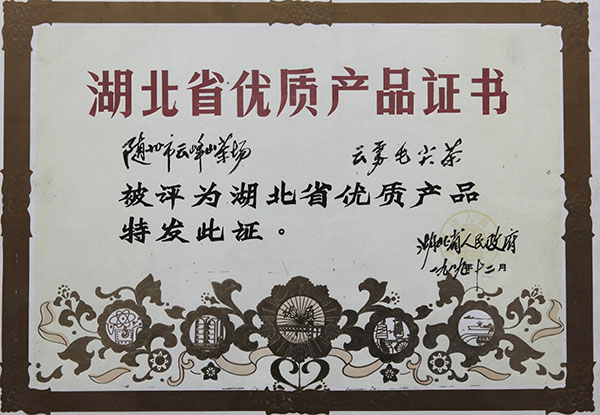 湖北省优质产品证书
随州市云峰山茶场 云雾毛尖茶
被评为湖北省优质产品
特发此证。
湖北省人民政府
一九八九年十二月